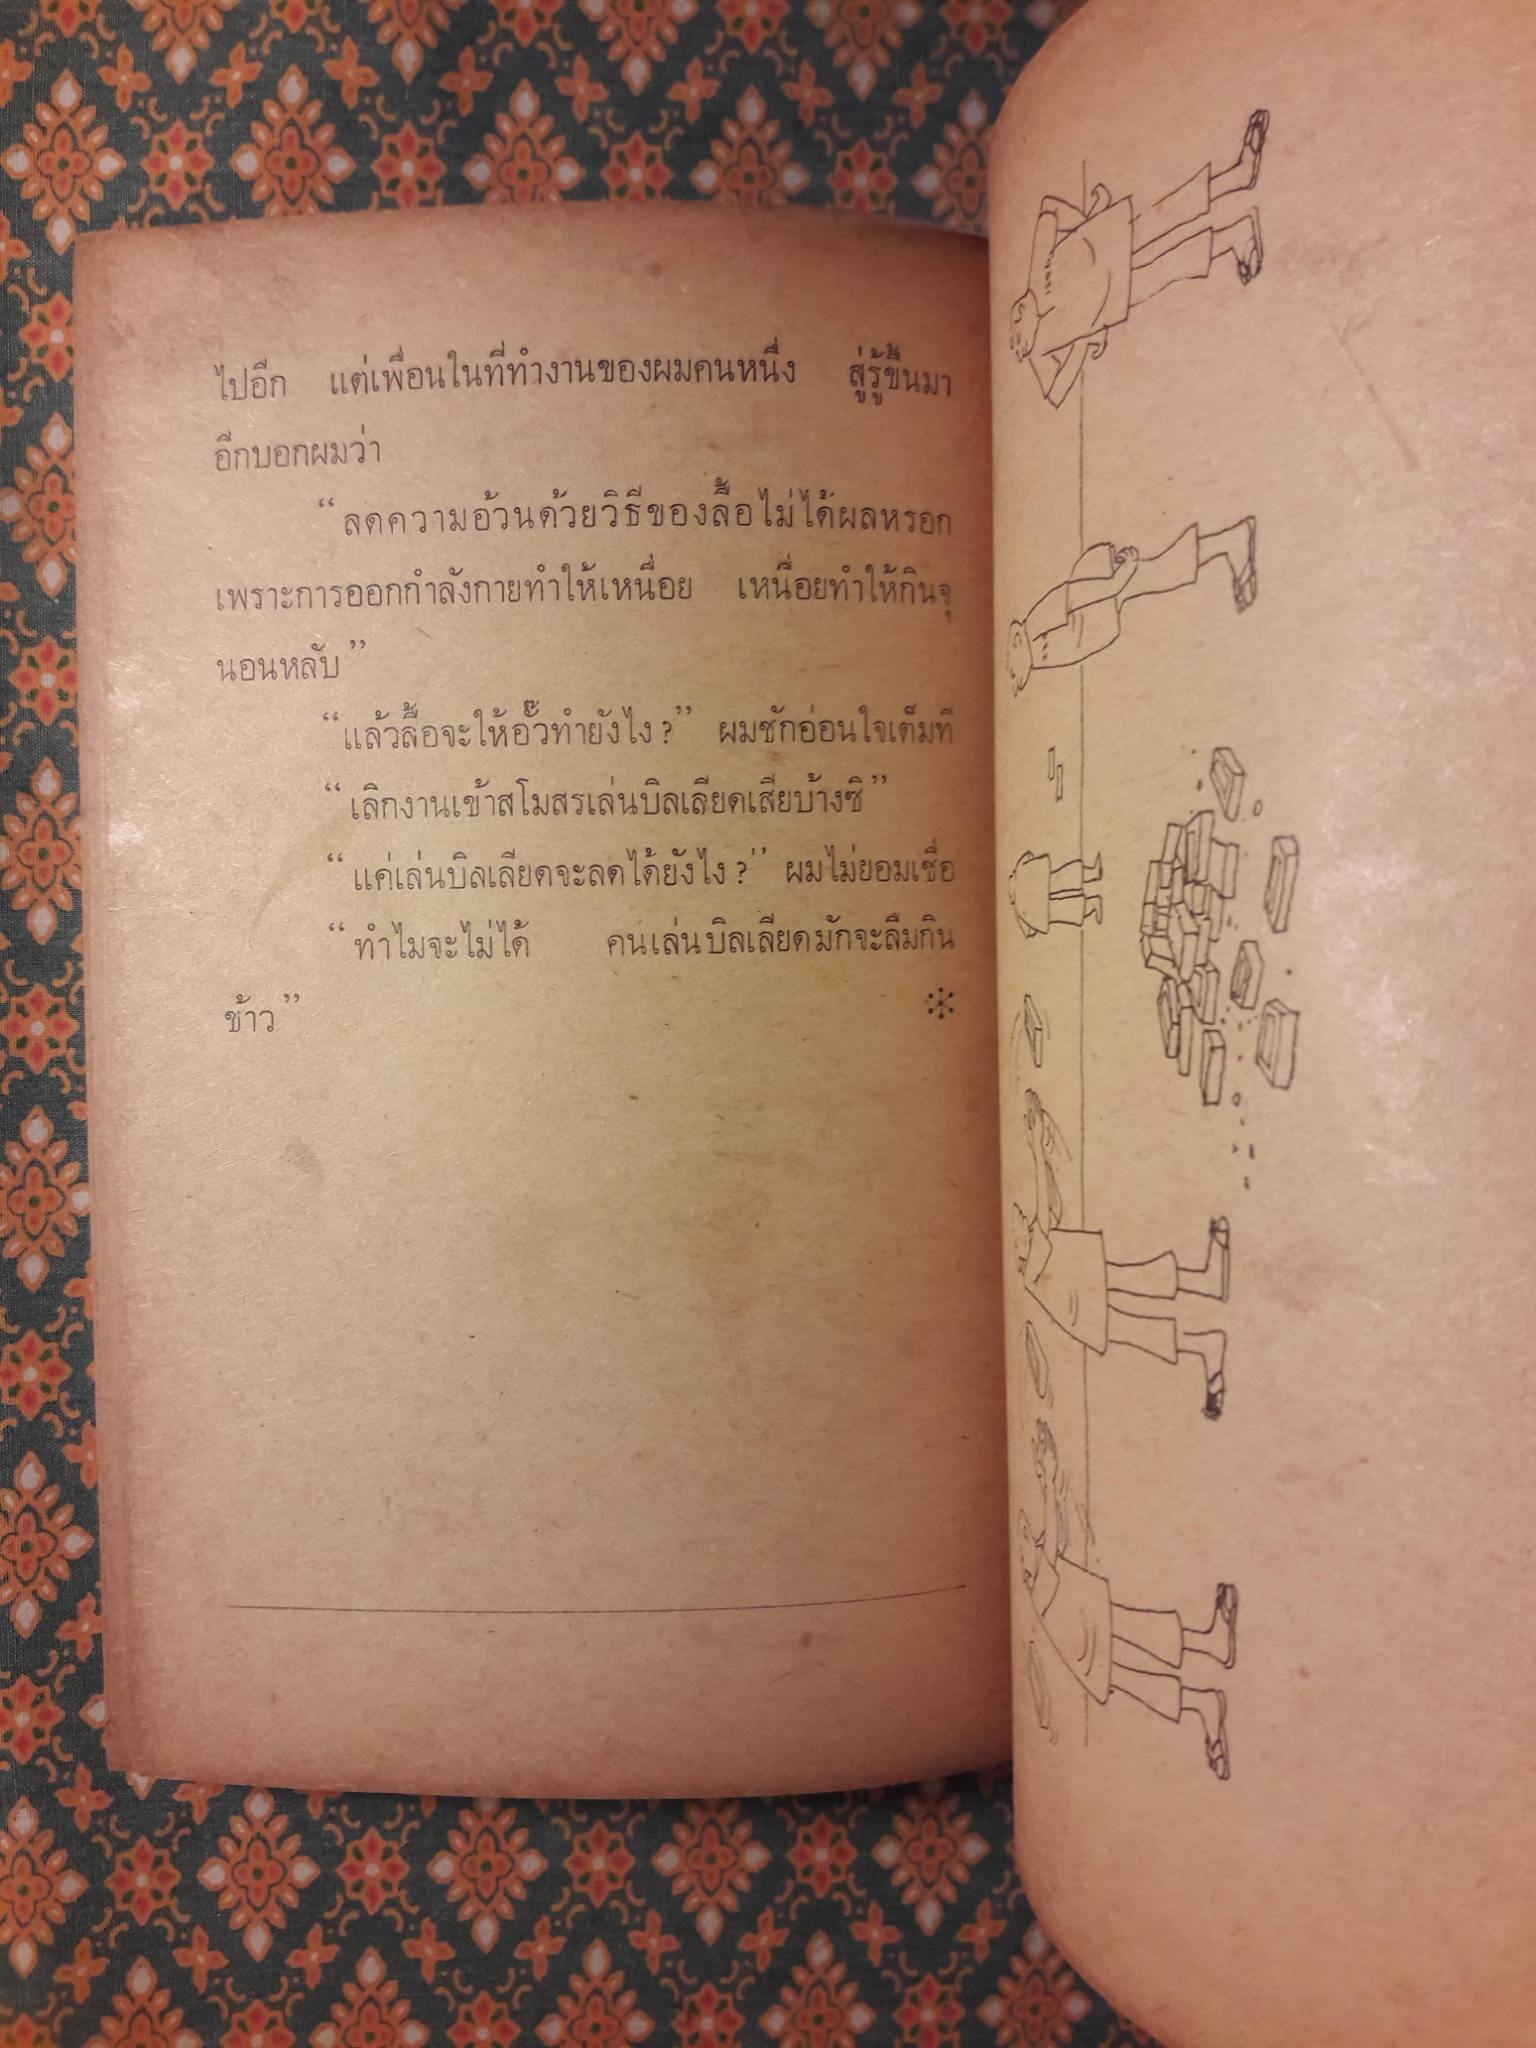 ไปอีก แต่เพื่อนในที่ทำงานของผมคนหนึ่ง สู่รู้ขึ้นมา
อีกบอกผมว่า
“ลดความอ้วนด้วยวิธีของลื้อไม่ได้ผลหรอก
เพราะการออกกำลังกายทำให้เหนื่อย เหนื่อยทำให้กินจุ
นอนหลับ”
“แล้วลื้อจะให้อั๊วทำยังไง?” ผมชักอ่อนใจเต็มที
“เลิกงานเข้าสโมสรเล่นบิลเลียดเสียบ้างซิ”
“แค่เล่นบิลเลียดจะลดได้ยังไง?” ผมไม่ยอมเชื่อ
“ทำไมจะไม่ได้ คนเล่นบิลเลียดมักจะลืมกิน
ข้าว”